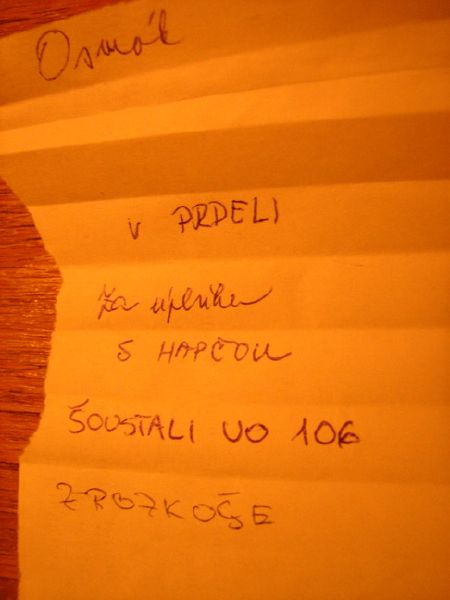 Osmák
v PRDELI
Za úplňku
S HAPČOU
ŠOUSTALI VO 106
Z ROZKOŠE